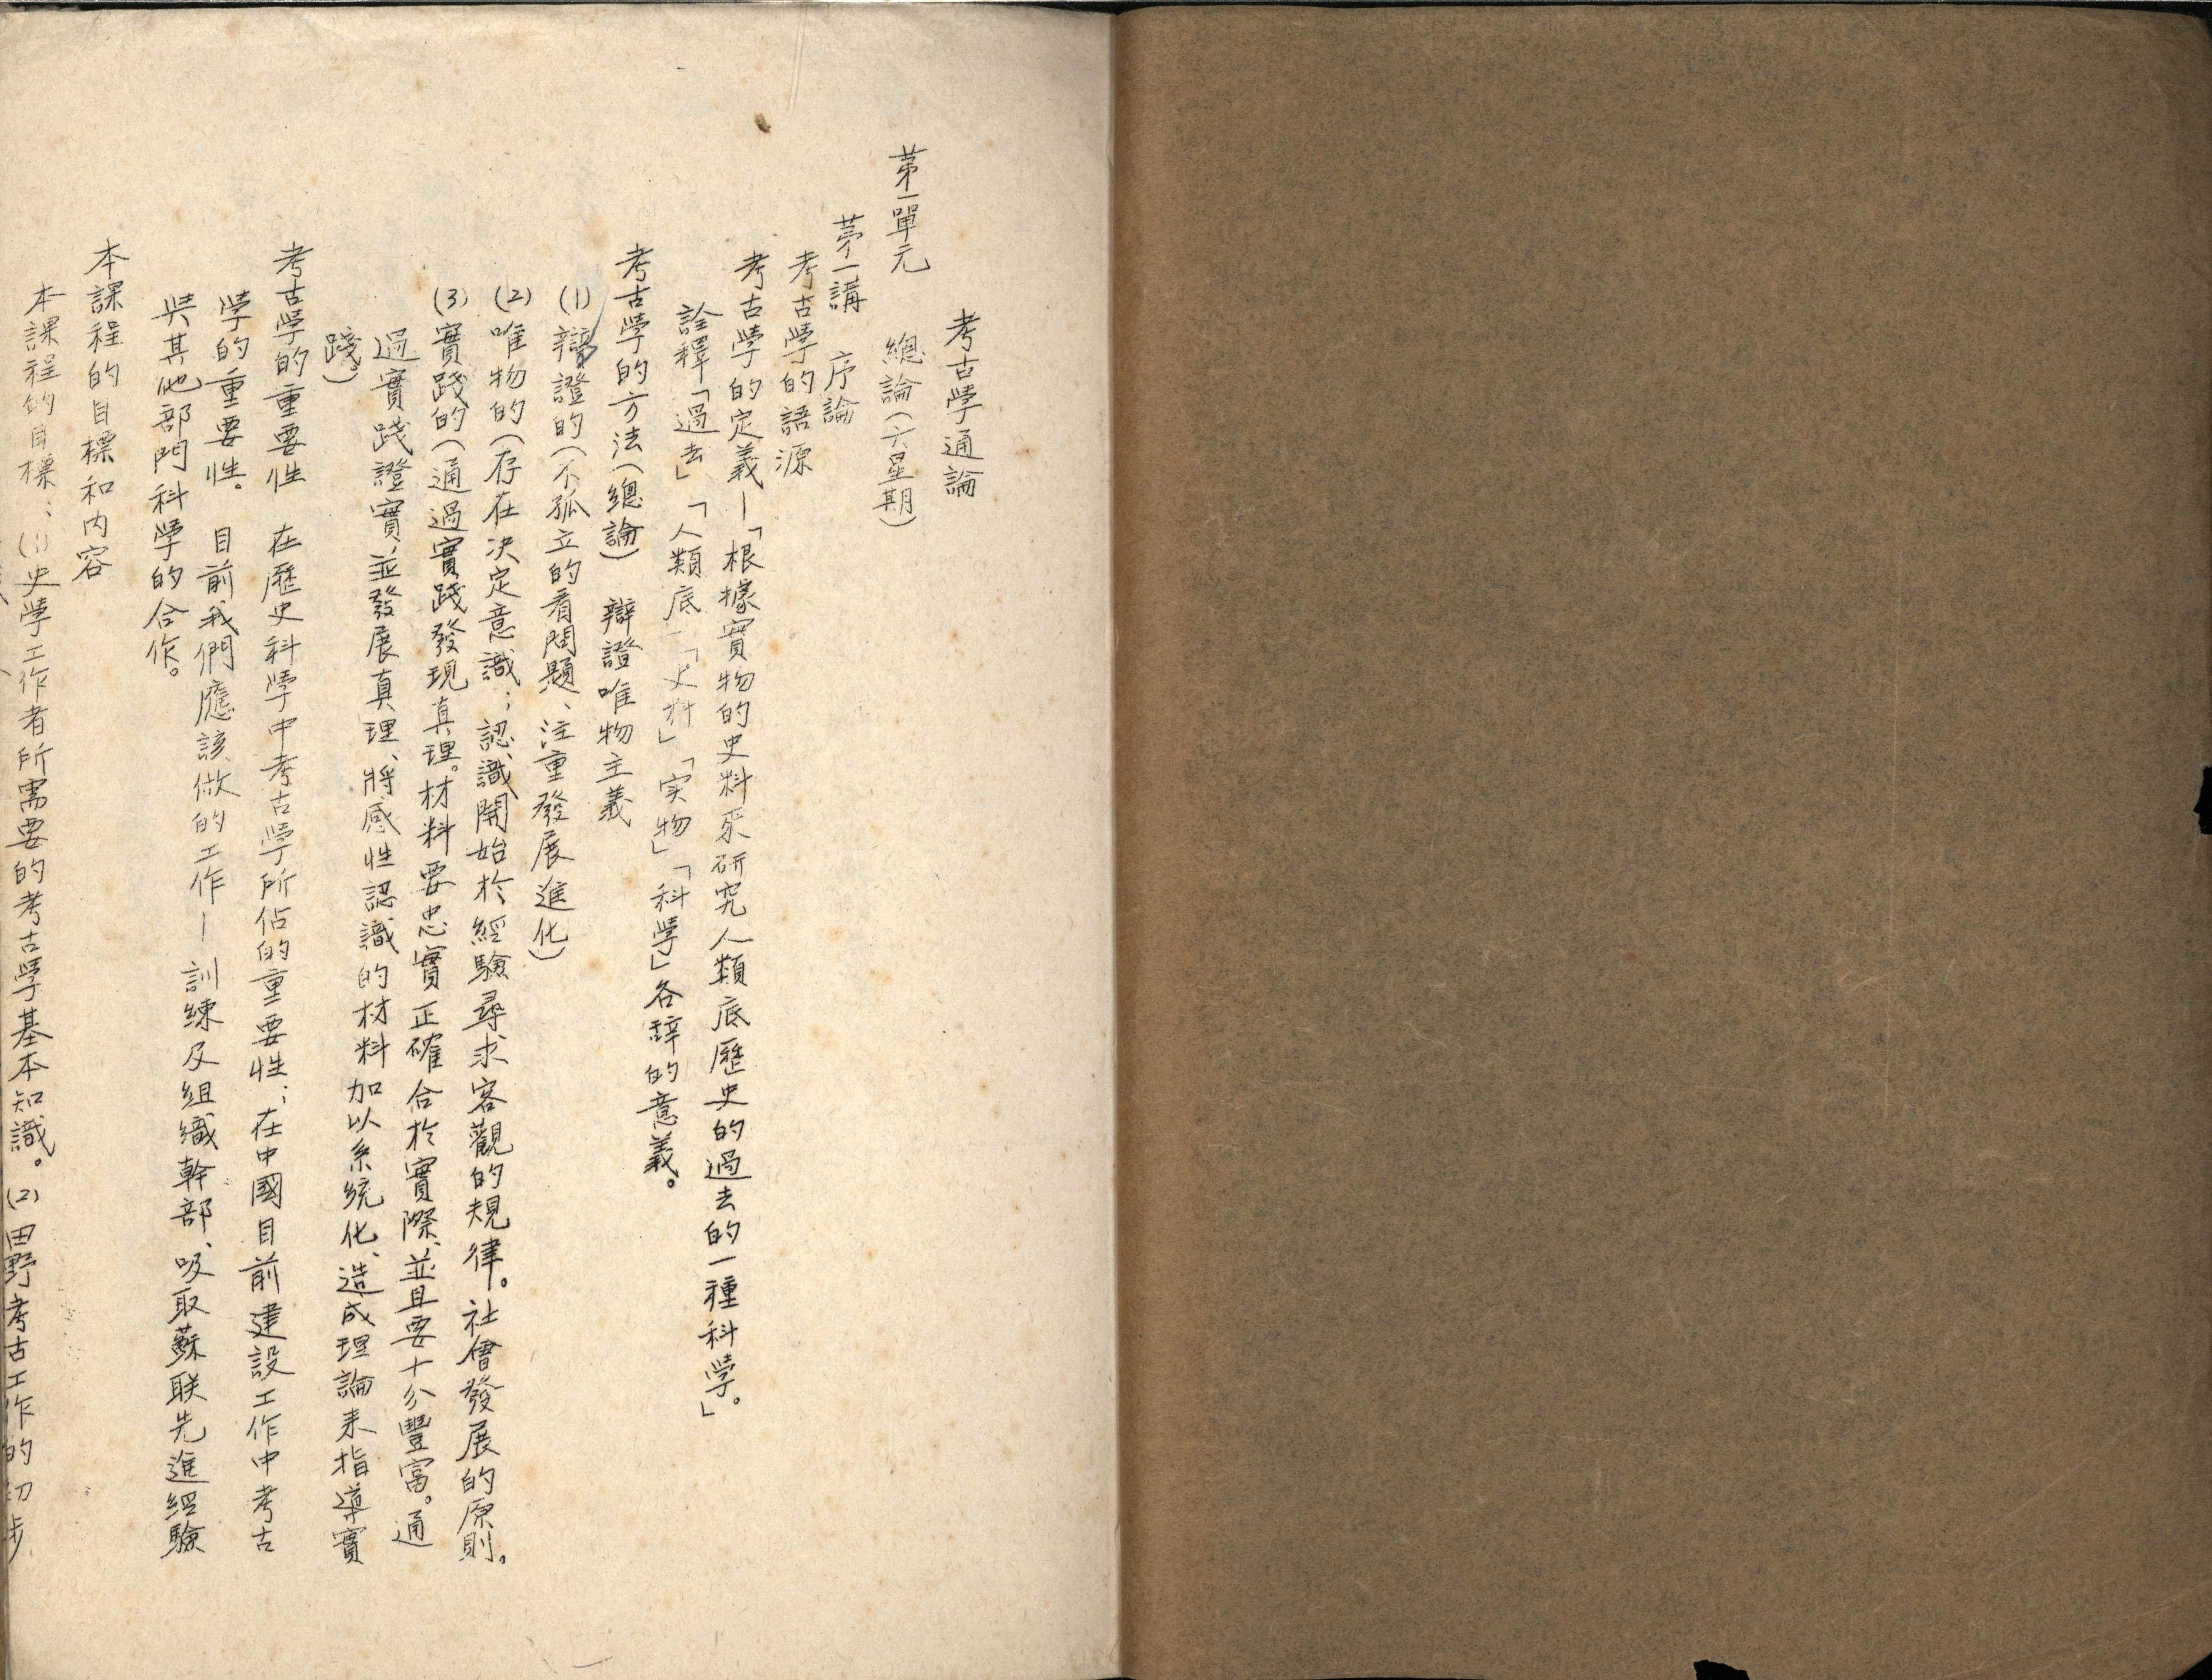 考古学通論
第一單元　總論（六星期）
第一講　序論
考古學的語源
考古學的定義—「根據實物的史料來研究人類底歷史的過去的一種科學。」
詮釋「過去」「人類底」「史料」「实物」「科學」各辞的意義。
考古學的方法（總論）　辯證唯物主義
(1) 辯證的（不孤立的看問題、注重發展進化）
(2) 唯物的（存在决定意識；認識開始於經驗尋求客觀的規律。社會發展的原則。
(3) 實踐的（通過實踐發現真理。材料要忠實正確合於實際、並且要十分豐富。通
過實踐證實、並發展真理、將感性認識的材料加以系統化、造成理論来指導實
踐。）
考古學的重要性　在歷史科學中考古學所佔的重要性；在中國目前建設工作中考古
學的重要性。　目前我們應該做的工作—訓練及組織幹部、吸取蘇联先進經驗
與其他部門科學的合作。
本課程的目標和内容
本課程的目標：(1)史學工作者所需要的考古學基本知識。(2)田野考古工作的初步